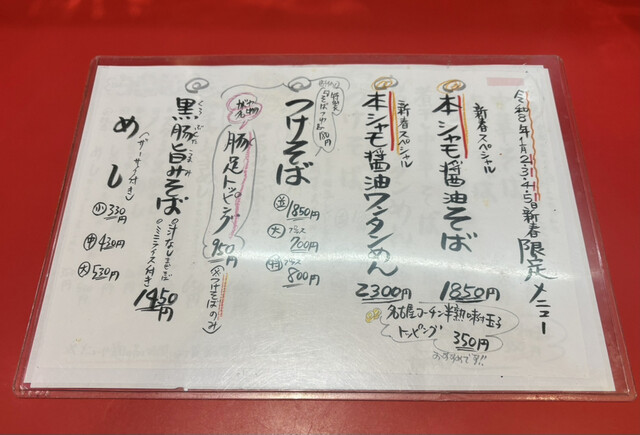 令和8年1月2・3・4・5日新春限定メニュー
新春スペシャル
本シャモ醤油そば
1850円
名古屋コーチン半熟味付玉子
トッピング
350円
おすすめです!!
新春スペシャル
本シャモ醤油ワンタンめん
2300円
つけそば
並 1850円
大 プラス700円
特 プラス800円
豚足トッピング
950円
(※つけそばのみ)
くろぶたうまみ
黒豚旨みそば
ミニライス付き
1450円
めし
(ザーサイ付き)
小 330円
中 430円
大 530円